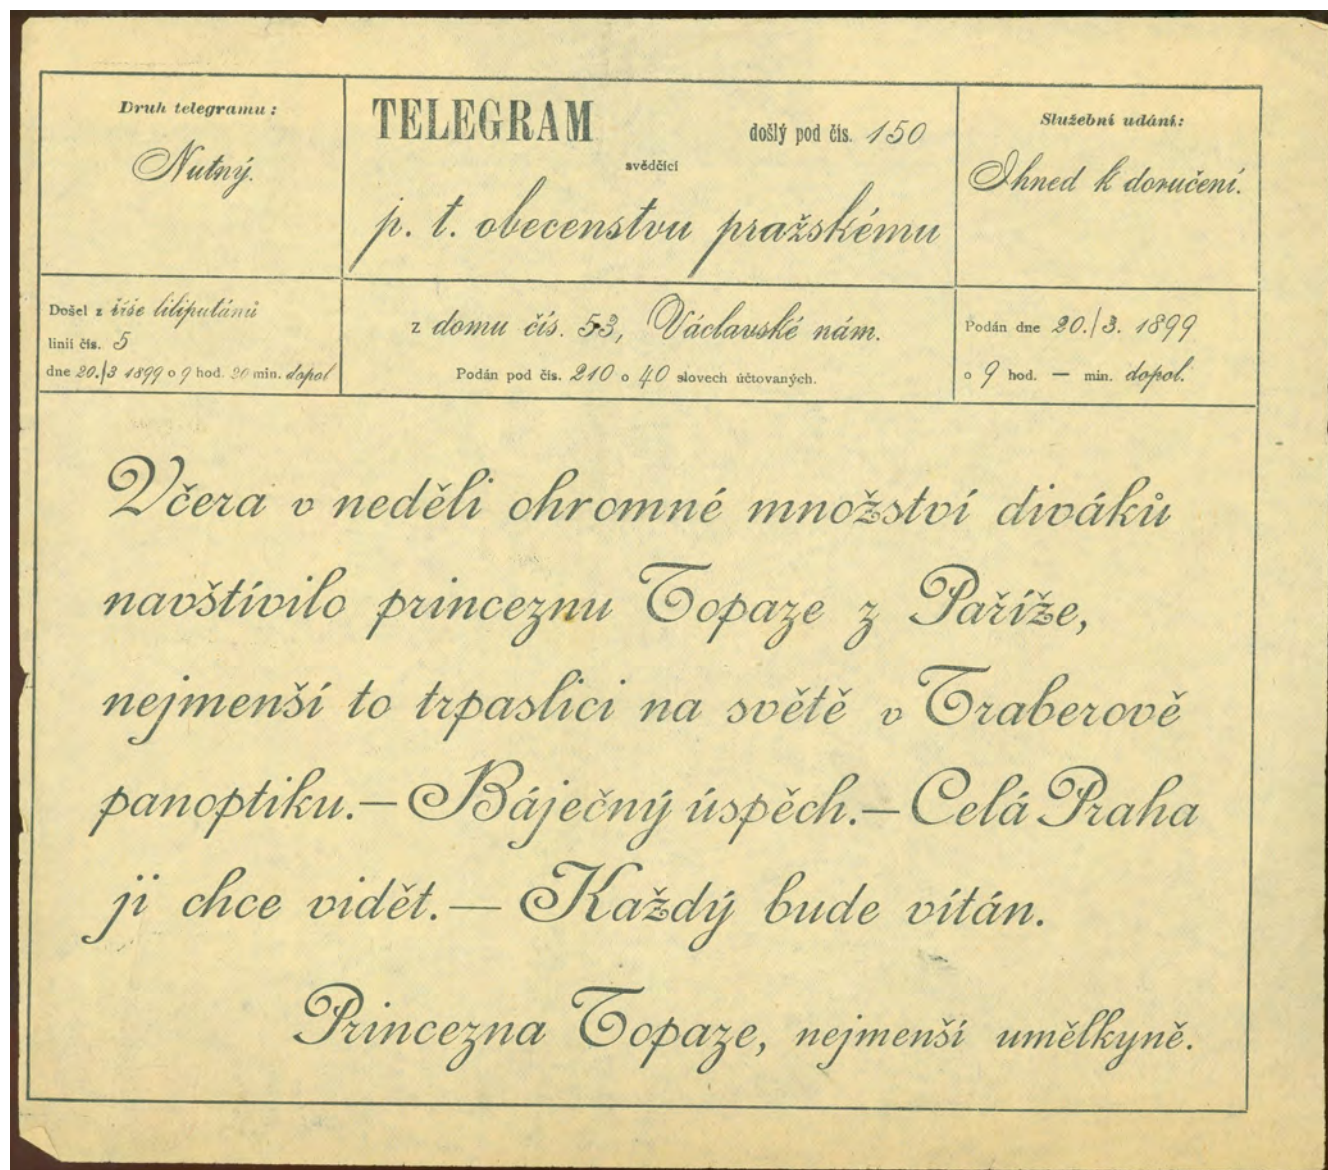 Druh telegramu:
Nutný.
TELEGRAM došlý pod čís. 150
svědčící
p. t. obecenstvu pražskému
Služební udání:
Ihned k doručení.
Došel z říše liliputánů
linií čís. 5
dne 20./3 1899 o 9 hod. 20 min. dopol
z domu čís. 53, Václavské nám.
Podán pod čís. 210 o 40 slovech účtovaných.
Podán dne 20./3. 1899
o 9 hod. — min. dopol.
Včera v neděli ohromné množství diváků
navštívilo princeznu Topaze z Paříže,
nejmenší to trpaslici na světě v Traberově
panoptiku.— Báječný úspěch.— Celá Praha
ji chce vidět.— Každý bude vítán.
Princezna Topaze, nejmenší umělkyně.